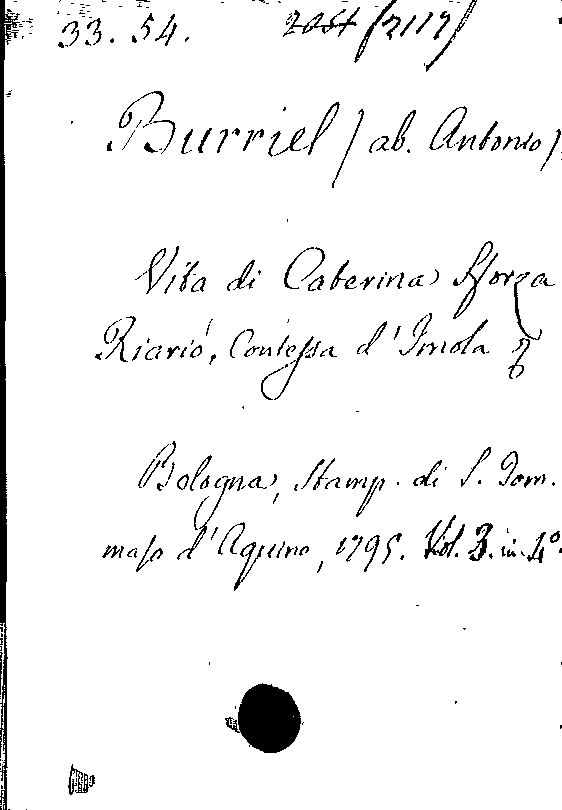 33. 54. 2051 (2117)
Burriel (ab. Antonio)
Vita di Caterina Sforza
Riario, Contessa d'Imola
Bologna, Stamp. di S. Tom.
maso d'Aquino, 1795. Vol. 3. in 4°